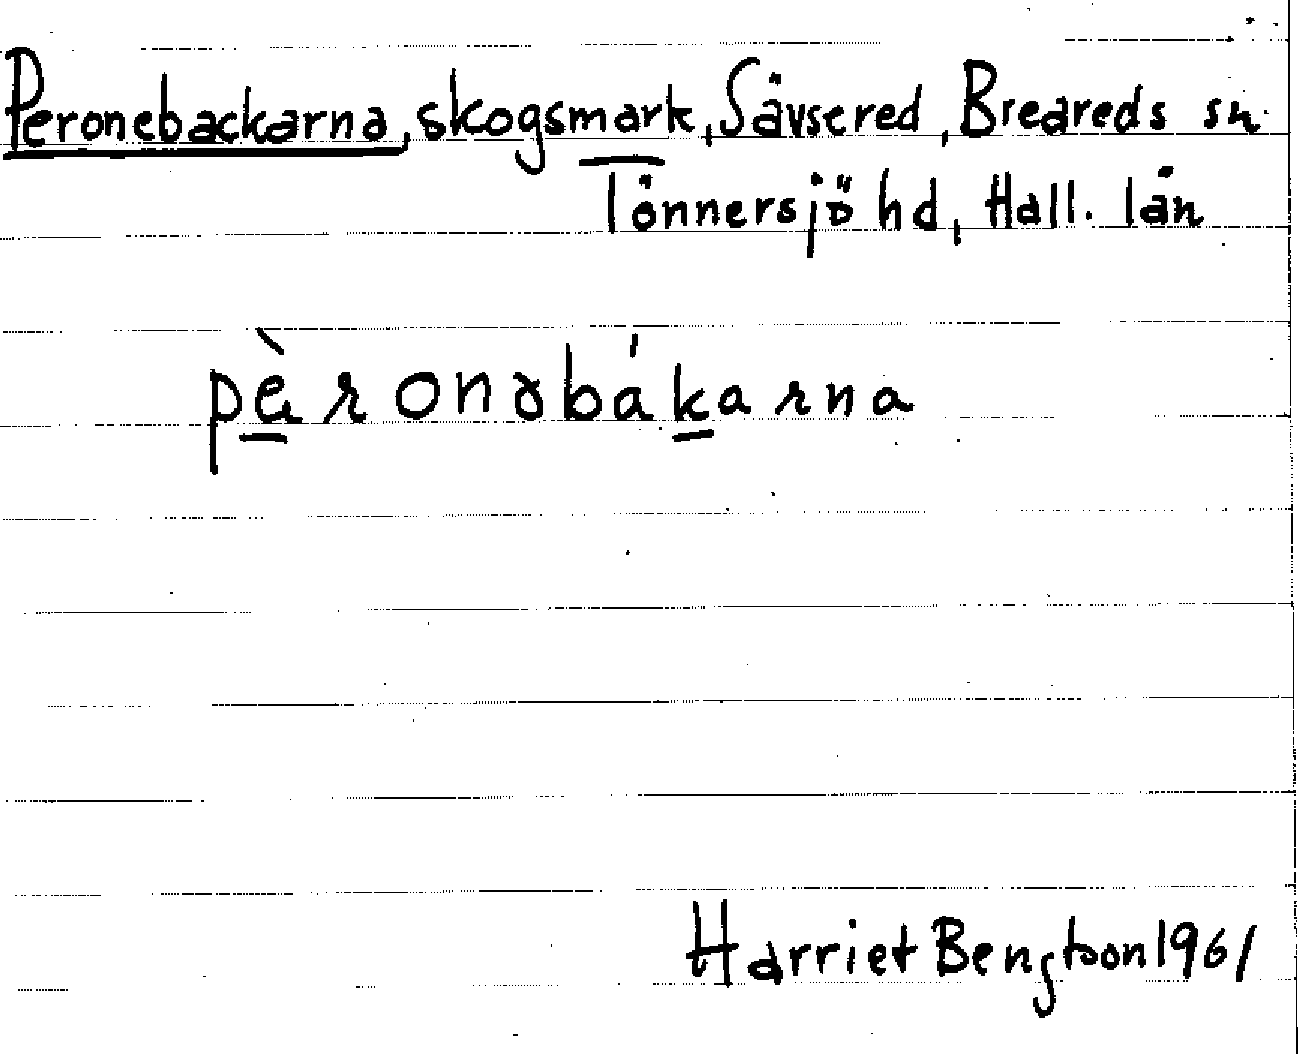 Peronebackarna, skogsmark, Sävsered, Breareds sn.
Tönnersjö hd, Hall. län
pæ̀ronəbákarna
Harriet Bengtson 1961